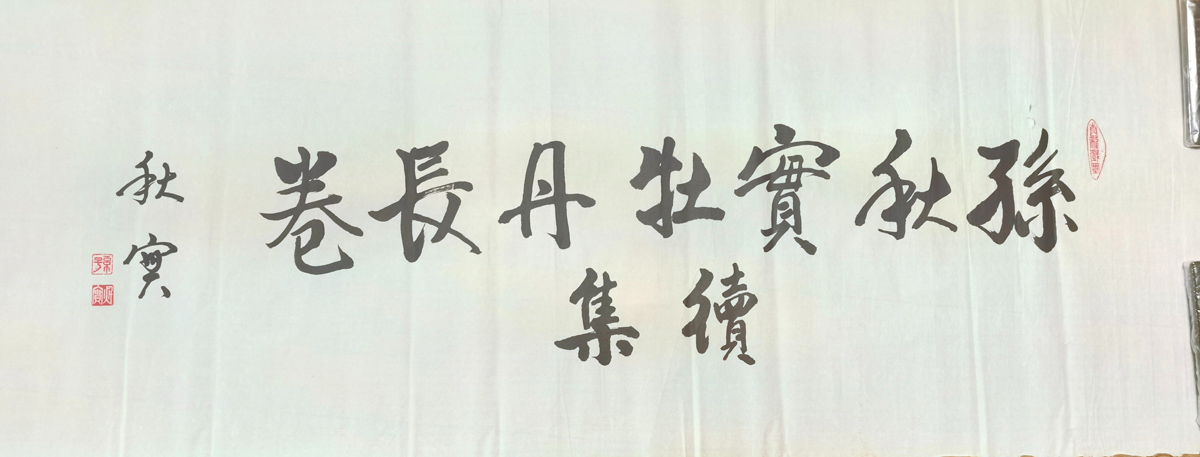 孫秋實牡丹長卷
續集
秋實